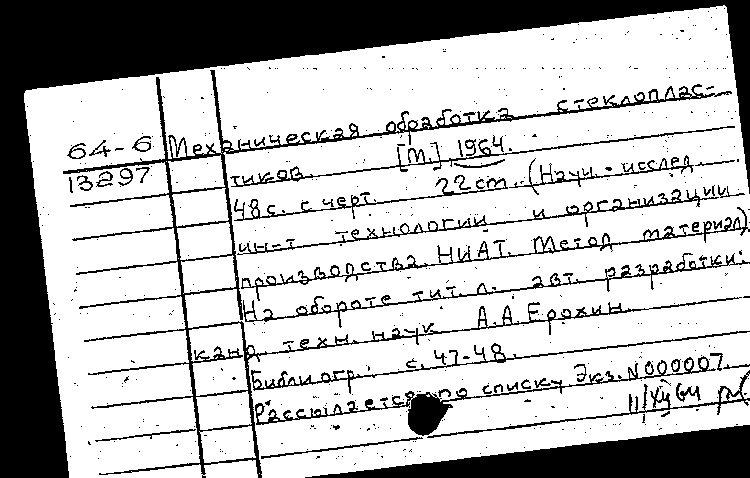 64-6 Механическая обработка стеклоплас-
13297 тиков. [М.] 1964.
48 с. с черт. 22 cm. (Науч.-исслед.
ин-т технологии и организации
производства. НИАТ. Метод материал)
На обороте тит. л. авт. разработки:
канд. техн. наук А.А. Ерохин.
Библиогр.: с. 47-48.
Рассылается по списку Экз. N000007.